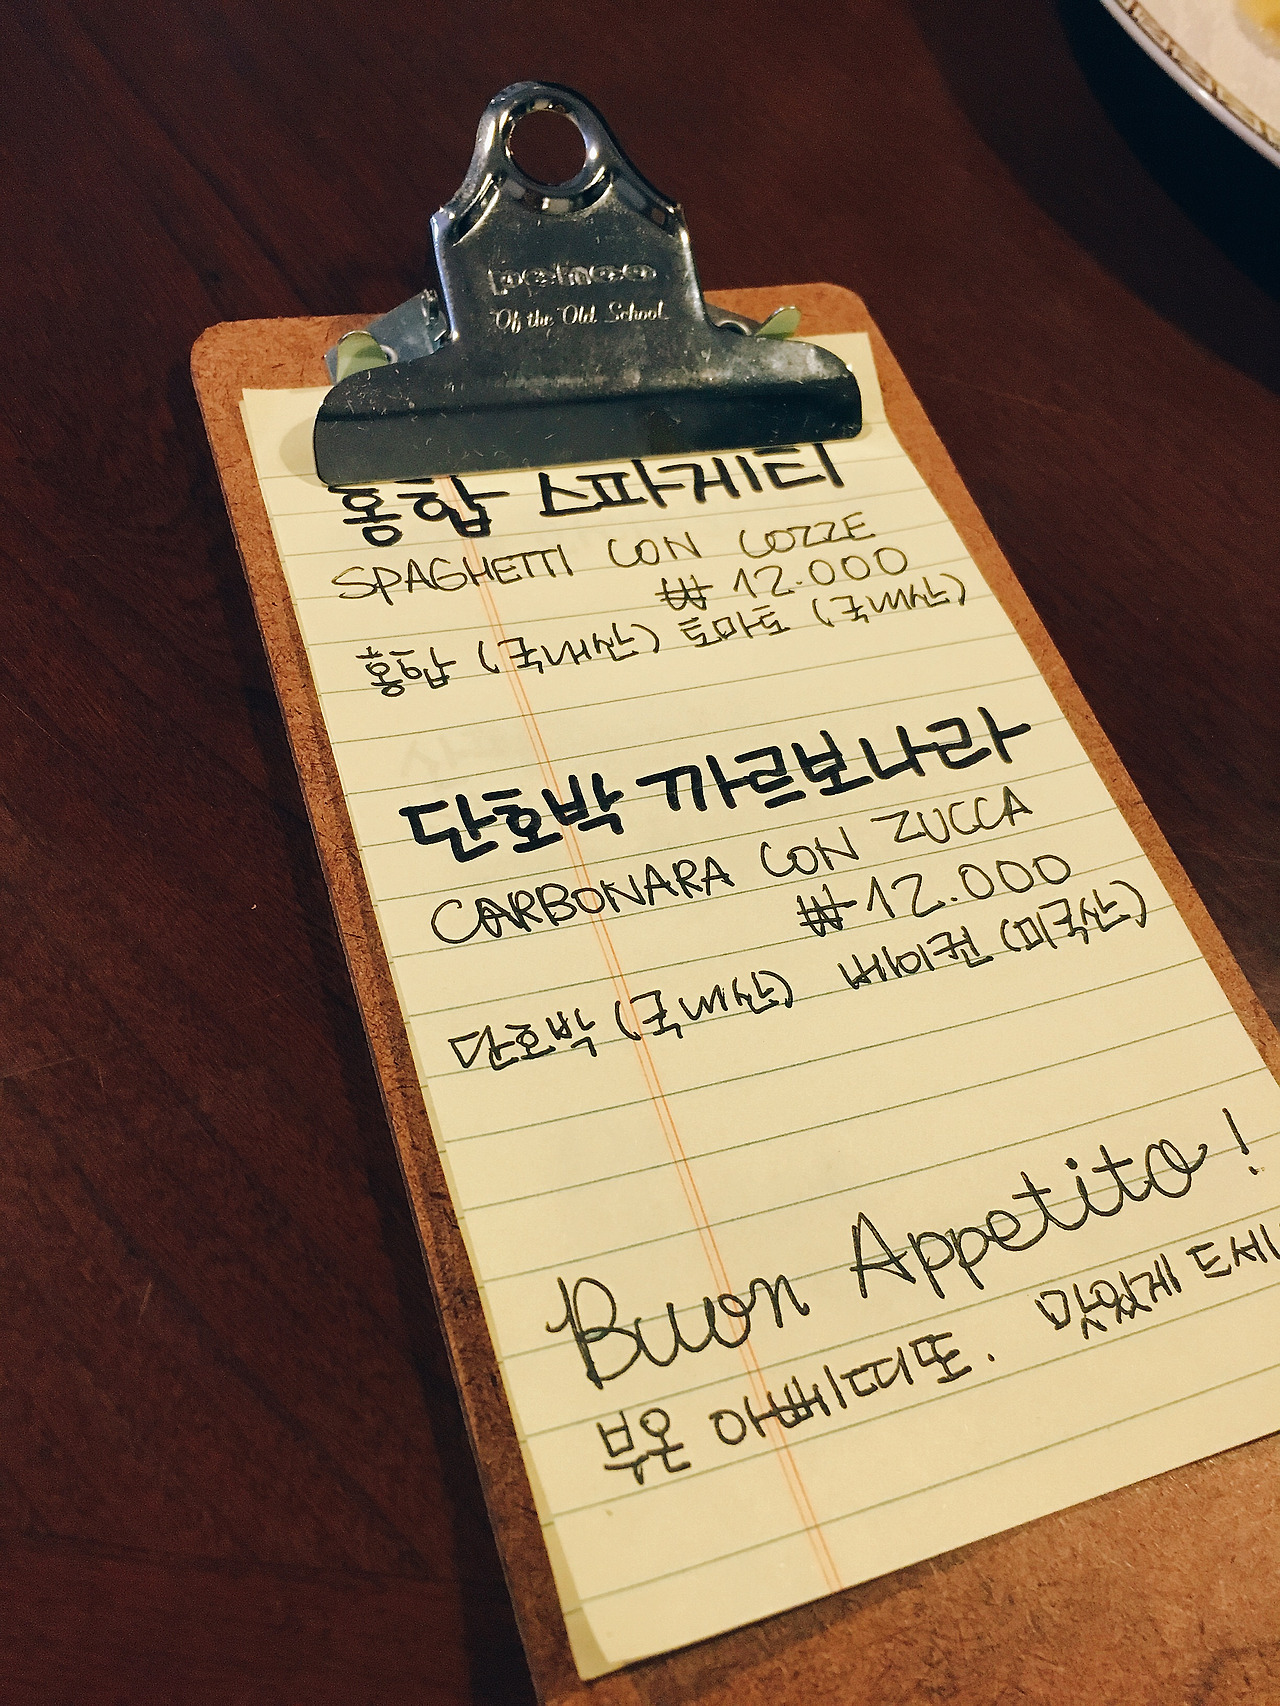 penco
Of the Old School
홍합 스파게티
SPAGHETTI CON COZZE
₩ 12.000
홍합 (국내산) 토마토 (국내산)
단호박 까르보나라
CARBONARA CON ZUCCA
₩ 12.000
단호박 (국내산) 베이컨 (미국산)
Buon Appetito !
부온 아뻬띠또. 맛있게 드세